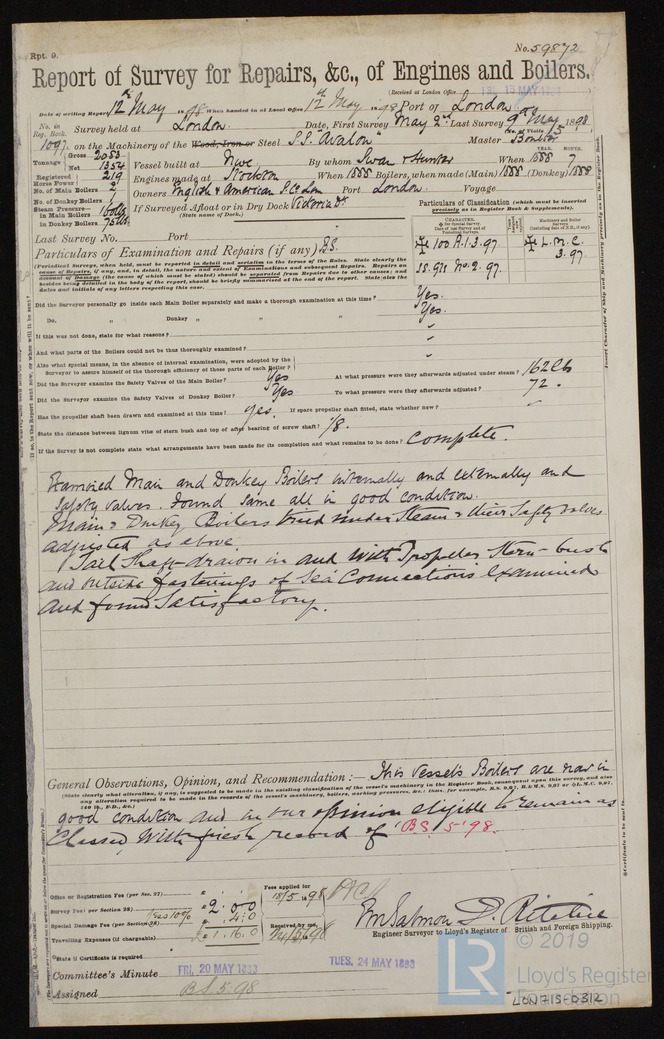 Rpt. 9.
No. 59872
Report of Survey for Repairs, &c., of Engines and Boilers.
(Received at London Office FRI. 13 MAY 1898
Date of writing Report 12th May 1898 When handed in at Local Office 12th May 1898 Port of London
No. in Reg. Book. Survey held at London. Date, First Survey May 2nd Last Survey 9th May 1898
(No. of Visits 5
1097. on the Machinery of the Wood, Iron or Steel S.S. "Avalon" Master Boulter
Tonnage Gross 2053 Net 1354
Vessel built at Nwc. By whom Swan & Hunter When 1888 7
YEAR. MONTH.
Registered Horse Power 219
Engines made at Stockton When 1888 Boilers, when made (Main) 1888 (Donkey) 1888
No. of Main Boilers 2
Owners English & American S.S. Co Lim Port London. Voyage
No. of Donkey Boilers 1
Steam Pressure— in Main Boilers 160 lbs in Donkey Boilers 75 lbs
If Surveyed Afloat or in Dry Dock Victoria Dk.
(State name of Dock.)
Particulars of Classification (which must be inserted precisely as in Register Book & Supplements).
Last Survey No. Port
100 A.1. 3.97.
L.M.C. 3.97
SS. No. 2. 97.
Particulars of Examination and Repairs (if any) BS.
(Periodical Surveys, when held, must be reported in detail and seriatim in the terms of the Rules. State clearly the cause of Repairs, if any, and, in detail, the nature and extent of Examinations and subsequent Repairs. Repairs on account of Damage (the cause of which must be stated) should be separated from Repairs due to other causes; and besides being detailed in the body of the report, should be briefly summarised at the end of the report. State also the dates and initials of any letters respecting this case.
Did the Surveyor personally go inside each Main Boiler separately and make a thorough examination at this time? Yes.
Do. " Donkey " " " Yes.
If this was not done, state for what reasons?
And what parts of the Boilers could not be thoroughly examined?
Also what special means, in the absence of internal examination, were adopted by the Surveyor to assure himself of the thorough efficiency of those parts of each Boiler?
Did the Surveyor examine the Safety Valves of the Main Boiler? Yes At what pressure were they afterwards adjusted under steam? 162 lbs
Did the Surveyor examine the Safety Valves of Donkey Boiler? Yes To what pressure were they afterwards adjusted? 72.
Has the propeller shaft been drawn and examined at this time? Yes. If spare propeller shaft fitted, state whether new?
State the distance between lignum vitæ of stern bush and top of after bearing of screw shaft? 1/8.
If the Survey is not complete state what arrangements have been made for its completion and what remains to be done? Complete.
Examined Main and Donkey Boilers internally and externally and
safety valves. Found same all in good condition.
Main & Donkey Boilers tried under Steam & their Safety valves
adjusted as above.
Tail Shaft drawn in and with Propeller Stern-bush
and outside fastenings of Sea Connections examined
and found Satisfactory.
General Observations, Opinion, and Recommendation:— This Vessel's Boilers are now in
(State clearly what alteration, if any, is suggested to be made in the existing classification of the vessel's machinery in the Register Book, consequent upon this survey, and also any alteration required to be made in the records of the vessel's machinery, boilers, working pressures, &c.; thus, for example, B.S. 9,97, B.&M.S. 9,97 or L.M.C. 9,97, 140 lb., F.D., &c.)
good condition and in our opinion eligible to remain as
Classed, with fresh record of 'BS. 5'98.
Office or Registration Fee (per Sec. 27) £
Fees applied for 18/5 1898
Survey Fee (per Section 28) £ 2:0:0
less 10% 4:0
Special Damage Fee (per Section 28)
Travelling Expenses (if chargeable) £ 1.16.0
Received by me,
24/5/98
State if Certificate is required
Em Salmon D. Ritchie
Engineer Surveyor to Lloyd's Register of British and Foreign Shipping.
Committee's Minute FRI. 20 MAY 1898 TUES. 24 MAY 1898
Assigned BS 5.98
© 2019
LR
Lloyd's Register
Foundation
LON715-0312